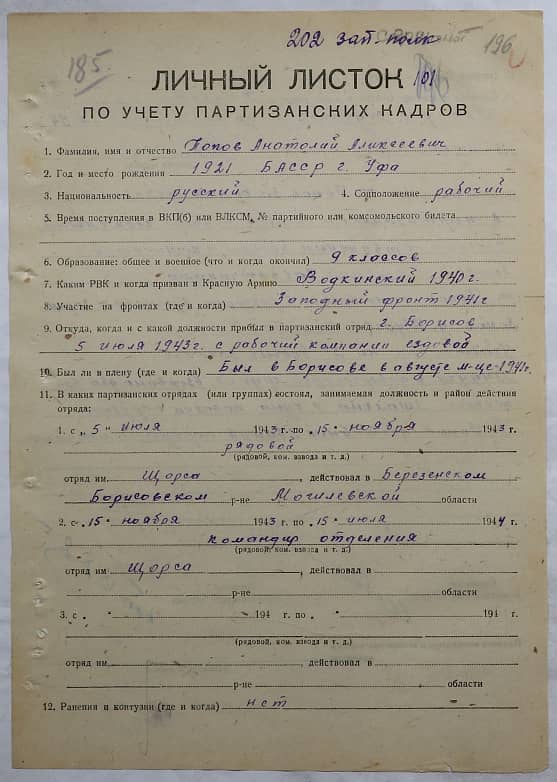 202 зап. полк
196
185.
ЛИЧНЫЙ ЛИСТОК 101
ПО УЧЕТУ ПАРТИЗАНСКИХ КАДРОВ
1. Фамилия, имя и отчество Попов Анатолий Алексеевич
2. Год и место рождения 1921 БАССР г. Уфа
3. Национальность русский 4. Соцположение рабочий
5. Время поступления в ВКП(б) или ВЛКСМ, № партийного или комсомольского билета
6. Образование: общее и военное (что и когда окончил) 9 классов
7. Каким РВК и когда призван в Красную Армию Водкинский 1940 г.
8. Участие на фронтах (где и когда) Западный фронт 1941 г
9. Откуда, когда и с какой должности прибыл в партизанский отряд г. Борисов
5 июля 1943 г. с рабочий компании ездовой
10. Был ли в плену (где и когда) Был в Борисове в августе м-це-1941 г.
11. В каких партизанских отрядах (или группах) состоял, занимаемая должность и район действия
отряда:
1. с „ 5 " июля 1943 г. по „ 15 " ноября 1943 г.
рядовой
(рядовой, ком. взвода и т. д.)
отряд им Щорса, действовал в Березенском
Борисовском р-не Могилевской области
2. с „ 15 " ноября 1943 г. по „ 15 " июля 1944 г.
командир отделения
(рядовой, ком. взвода и т. д.)
отряд им Щорса, действовал в
р-не области
3. с „ " 194 г. по „ " 194 г.
(рядовой, ком. взвода и т. д.)
отряд им., действовал в
р-не области
12. Ранения и контузии (где и когда) нет